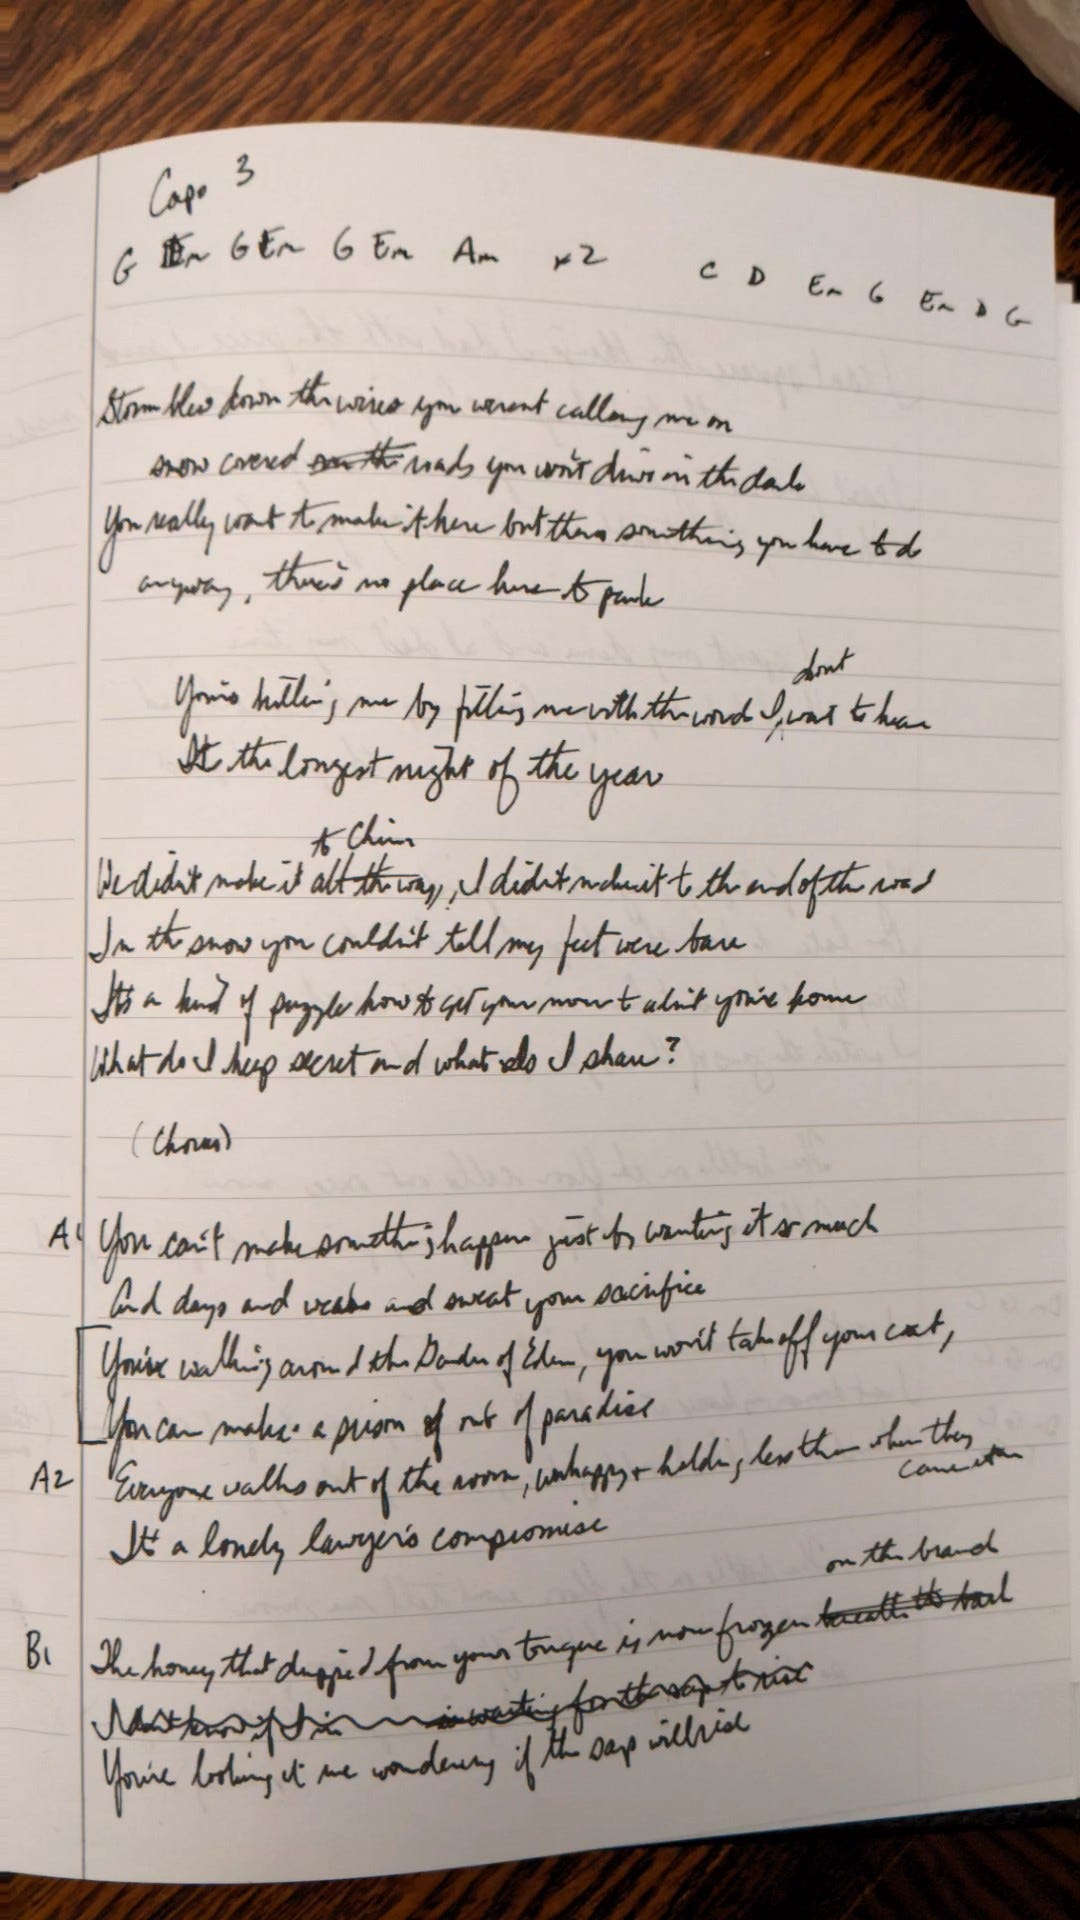 Capo 3
G Em G Em G Em Am x2 C D Em G Em D G
Storm blew down the wires you werent calling me on
snow covered roads you won't drive in the dark
You really want to make it here but theres something you have to do
anyway, there's no place here to park
dont
You're killing me by filling me with the word I want to hear
It the longest night of the year
to China
We didn't make it all the way, I didn't make it to the end of the road
In the snow you couldn't tell my feet were bare
It's a kind of puzzle how to get your mom to admit you're home
What do I keep secret and what do I share?
(Chorus)
A1 You can't make something happen just by wanting it so much
And days and weeks and sweat your sacrifice
You're walking around the Garden of Eden, you won't take off your coat,
You can make a prison out of paradise
A2 Everyone walks out of the room, unhappy + holding less than when they
came in
It's a lonely lawyer's compromise
on the branch
B1 The honey that dripped from your tongue is now frozen beneath the bark
I don't know if I'm is waiting for the sap to rise
You're looking at me wondering if the sap will rise